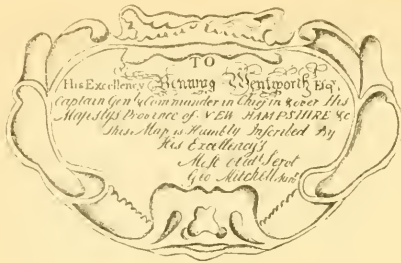 TO
His Excellency Benning Wentworth Esqr.
Captain Genl & Commander in Chief in & over His
Majestys Province of NEW HAMPSHIRE &c
This Map is Humbly Inscribed By
His Excellency's
Most obedt. Servt
Geo Mitchell Survr